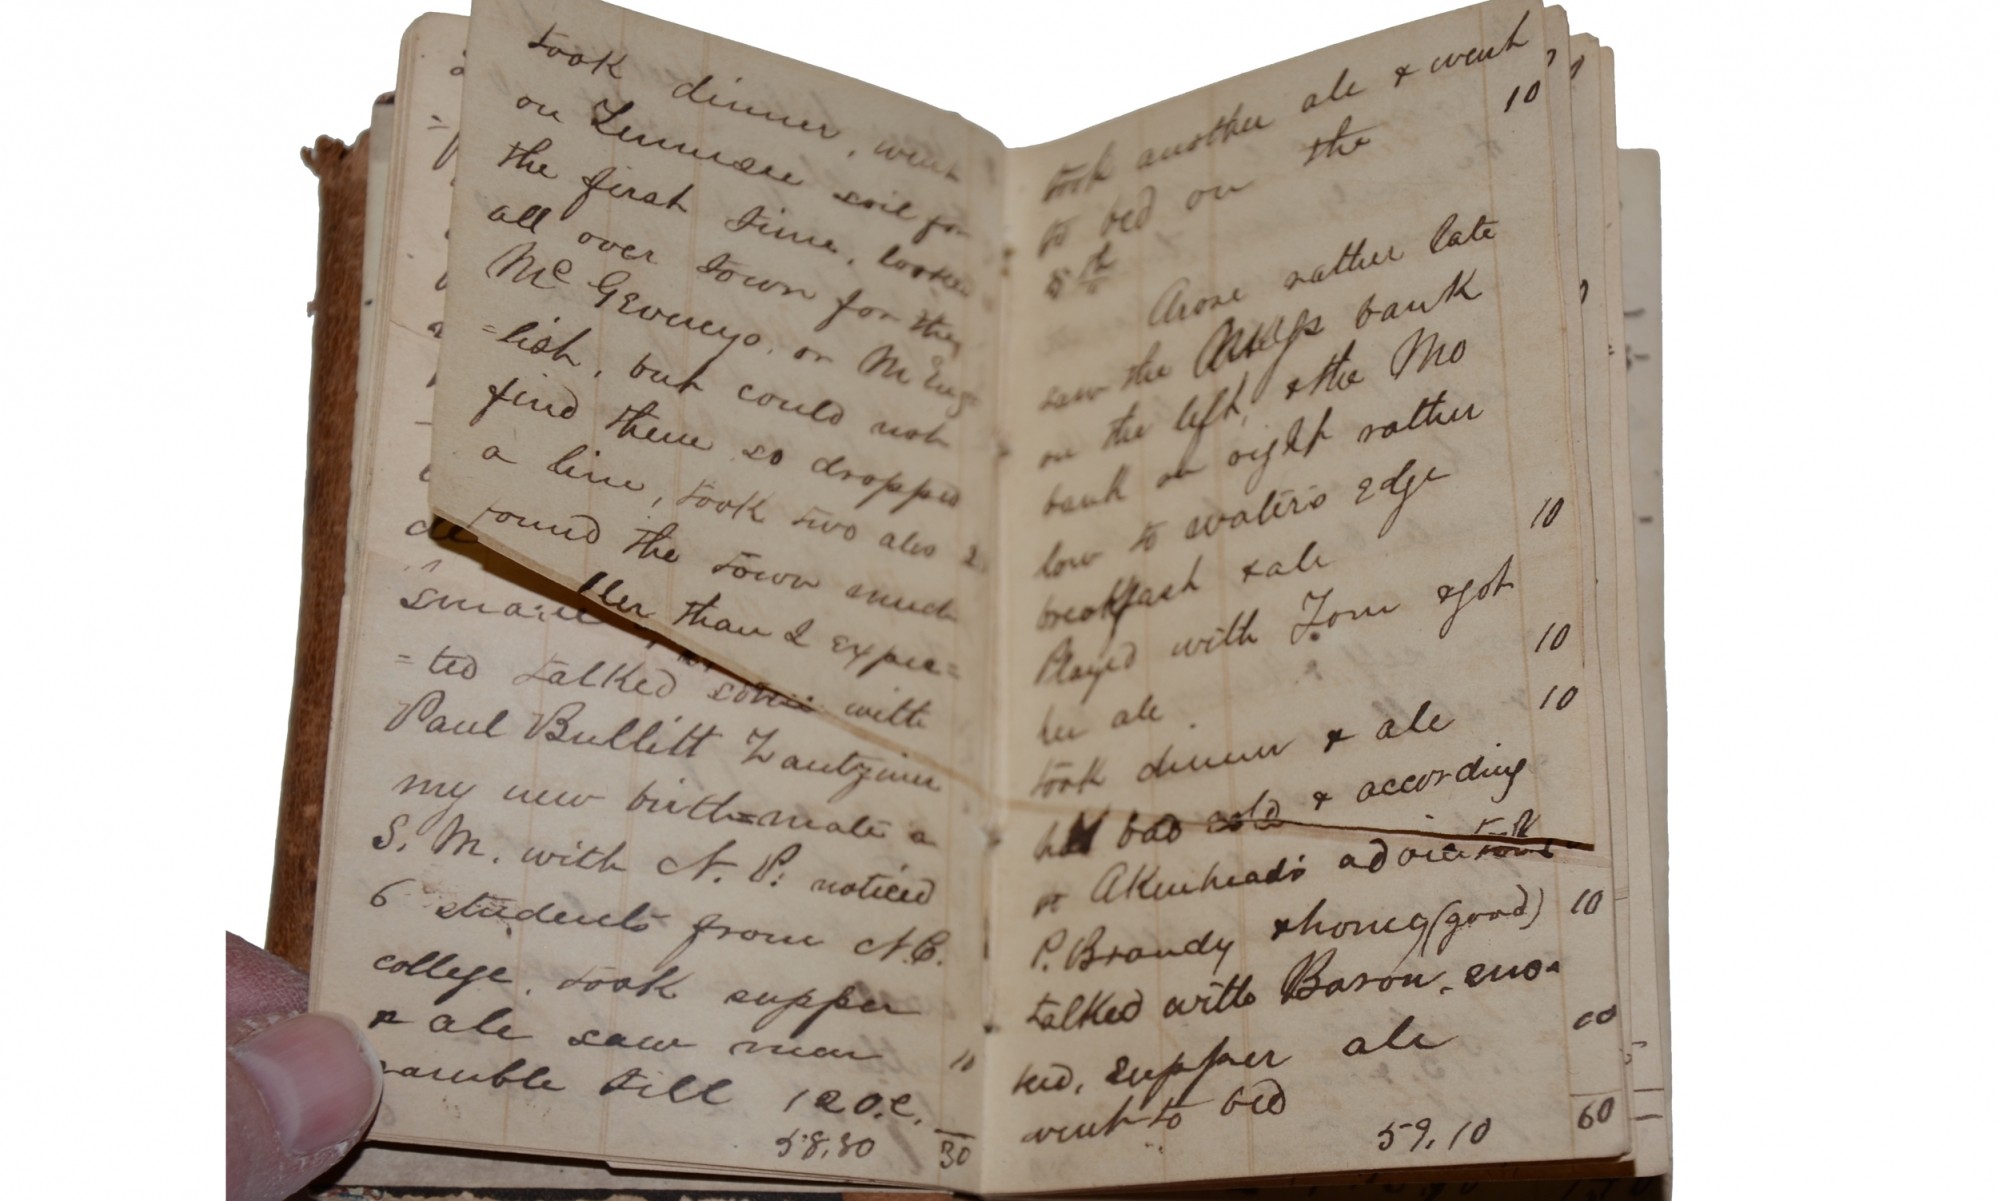 took dinner, went
on Tennessee soil for
the first time, looked
all over town for the
McGeveneys, or M Eng
=lish, but could not
find them so dropped
a line, took two ales 2
round the town much
ller than I expec=
=ted talked some with
Paul Bullitt Zantziner
my new birth=mate a
S. M. with N. P. noticed
6 students from N.C.
college, took supper
& ale saw men 10
ramble till 12 O.C.
58,50 30
took another ale & went
to bed on the 10
5th
Arose rather late
saw the bank
on the left, & the Mo
bank on right rather
low to water's edge
breakfast & ale 10
Played with Tom & got
her ale. 10
took dinner & ale 10
had bad cold & according
to Akenhead's advice took
P. Brandy & honey (good) 10
talked with Bason, smo=
ked, supper ale
went to bed
59,10 60